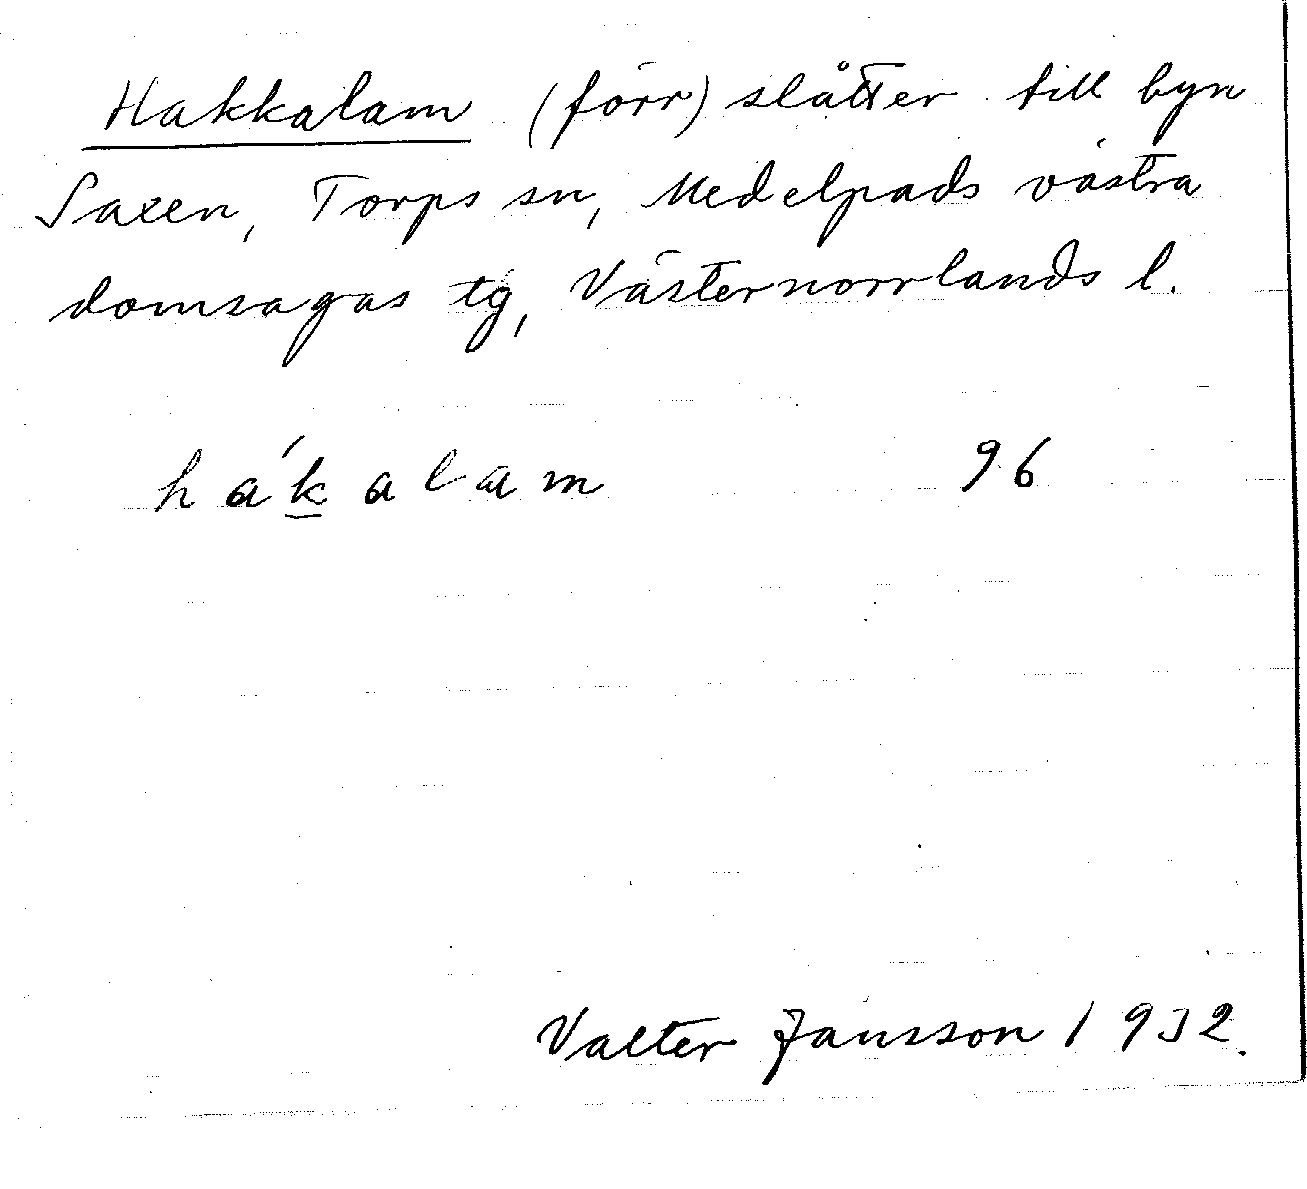 Hakkalam (förr) slåtter till byn
Saxen, Torps sn, Medelpads västra
domsagas tg, Västernorrlands l.
hák̲alam 96
Valter Jansson 1932.